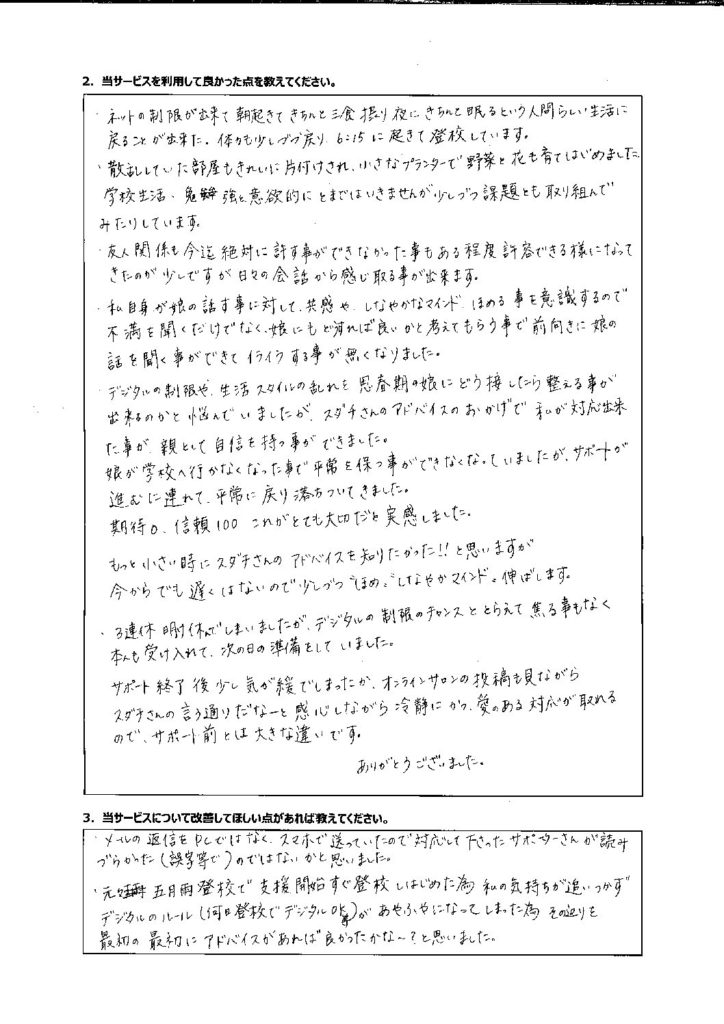 2. 当サービスを利用して良かった点を教えてください。
・ネットの制限が出来て朝起きてきちんと三食摂り夜にきちんと眠るという人間らしい生活に
戻ることが出来た。体力も少しづつ戻り、6:15に起きて登校しています。
・散乱していた部屋もきれいに片付けされ、小さなプランターで野菜と花も育てはじめました。
学校生活、勉強と意欲的にとまではいきませんが少しづつ課題とも取り組んで
みたりしています。
・友人関係も今迄絶対に許す事ができなかった事もある程度許容できる様になって
きたのが少しですが日々の会話から感じ取る事が出来ます。
・私自身が娘の話す事に対して、共感や、しなやかなマインド、ほめる事を意識するので
不満を聞くだけでなく、娘にもどうすれば良いかと考えてもらう事で前向きに娘の
話を聞く事ができてイライラする事が無くなりました。
デジタルの制限や、生活スタイルの乱れを思春期の娘にどう接したら整える事が
出来るのかと悩んでいましたが、スダチさんのアドバイスのおかげで私が対応出来
た事が、親として自信を持つ事ができました。
娘が学校へ行かなくなった事で平常を保つ事ができなくなっていましたが、サポートが
進むに連れて、平常に戻り落ちついてきました。
期待0、信頼100 これがとても大切だと実感しました。
もっと小さい時にスダチさんのアドバイスを知りたかった!!と思いますが
今からでも遅くはないので少しづつ"ほめ。""しなやかマインド。伸ばします。
・3連休明け休んでしまいましたが、デジタルの制限のチャンスととらえて焦る事もなく
本人も受け入れて、次の日の準備をしていました。
サポート終了後少し気が緩でしまったか、オンラインサロンの投稿も見ながら
スダチさんの言う通りだなーと感心しながら冷静にかつ、愛のある対応が取れる
ので、サポート前とは大きな違いです。
ありがとうございました。
3. 当サービスについて改善してほしい点があれば教えてください。
・メールの返信をPCではなく、スマホで送っていたので対応して下さったサポーターさんが読み
づらかった(誤字等で)のではないかと思いました。
・元々五月雨登校で支援開始すぐ登校しはじめた為 私の気持ちが追いつかず
デジタルのルール(何日登校でデジタルOK等)があやふやになってしまった為 その辺りを
最初の最初にアドバイスがあれば良かったかな〜?と思いました。